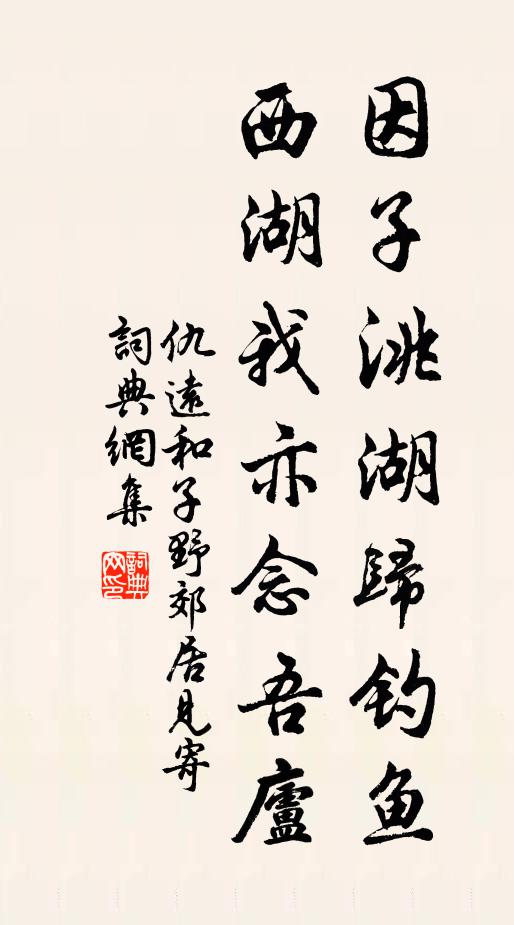 因子洮湖歸钓鱼
西湖我亦念吾廬
仇遠和子野郊居見寄
詞典網集
詞典网印